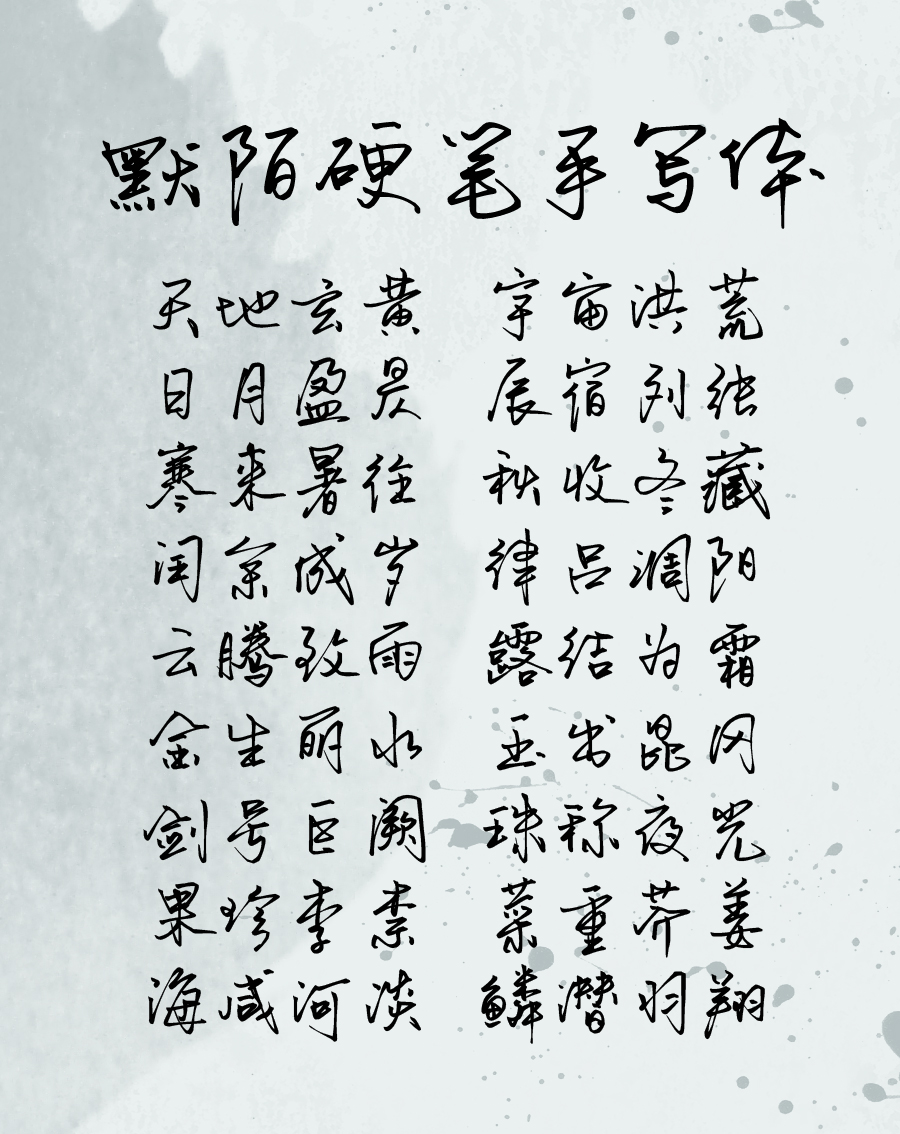 默陌硬笔手写体
天地玄黄 宇宙洪荒
日月盈昃 辰宿列张
寒来暑往 秋收冬藏
闰余成岁 律吕调阳
云腾致雨 露结为霜
金生丽水 玉出昆冈
剑号巨阙 珠称夜光
果珍李柰 菜重芥姜
海咸河淡 鳞潜羽翔